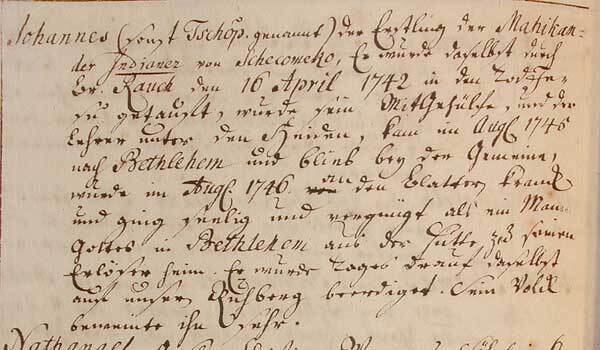 Johannes (sonst Tschöp. genannt) der Erstling der Mahikan-
der Indianer von Schecomeko, Er wurde daselbst durch
Br. Rauch den 16 April 1742 in den Tod Je-
su getauft, wurde sein MitGehülfe, und der
Lehrer unter den Heiden, kam im Augl. 1745
nach Bethlehem und blieb bey der Gemeine,
wurde im Augl. 1746. an den Blattern kranck
und ging seelig und vergnügt als ein Mann
Gottes in Bethlehem aus der Hütte zu seinem
Erlöser heim. Er wurde Tages drauf daselbst
auf unsern Ruhberg beerdiget. Sein Volck
beweinte ihn sehr.
Nathanael